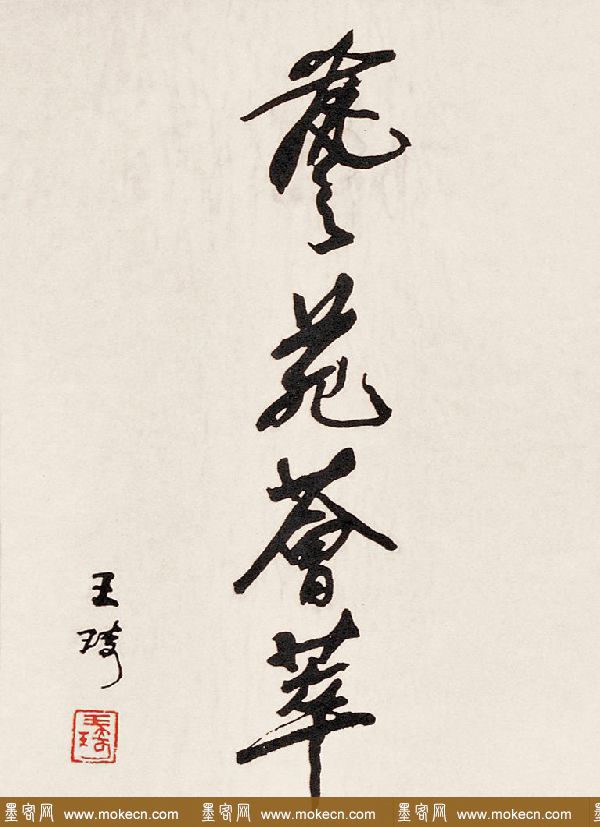 藝苑薈萃
王琦
王琦
墨客网 www.mokecn.com 墨客网 www.mokecn.com 墨客网 www.mokecn.com